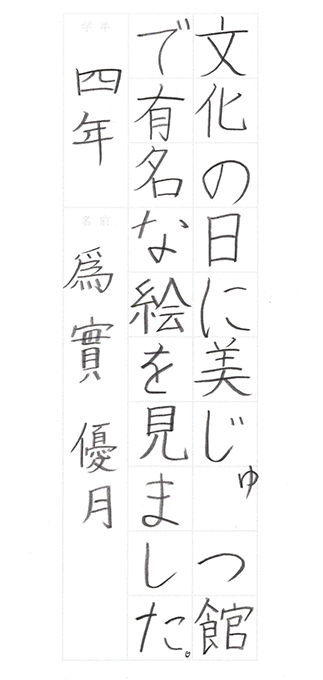 文化の日に美じゅつ館
で有名な絵を見ました。
学年
四年
名前
爲實 優月